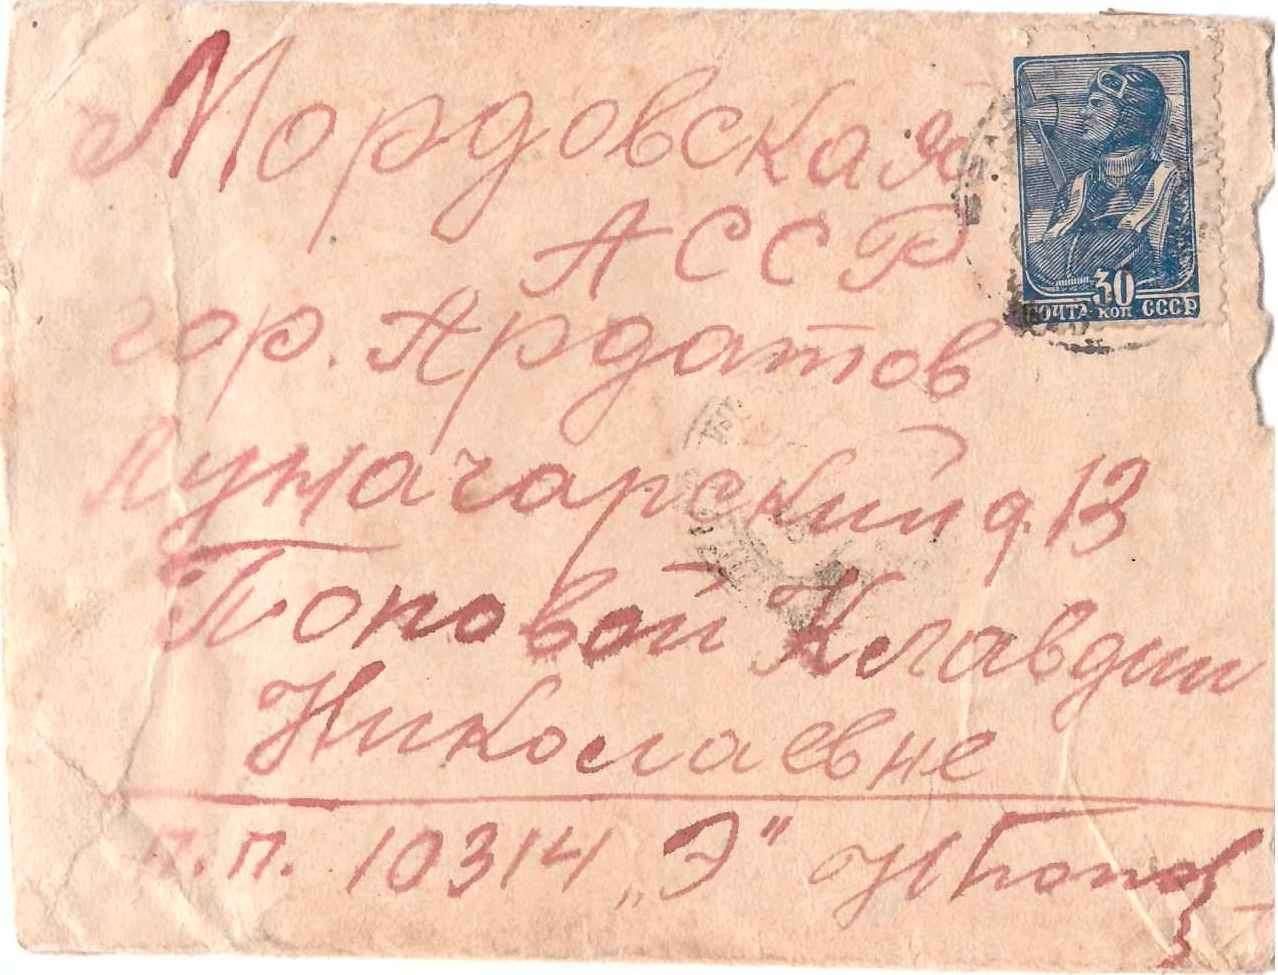 Мордовская
АССР
гор. Ардатов
Луначарский д. 13
Поповой Клавдии
Николаевне
п.п. 10314 „Э" Н Попов
30
ПОЧТА КОП СССР